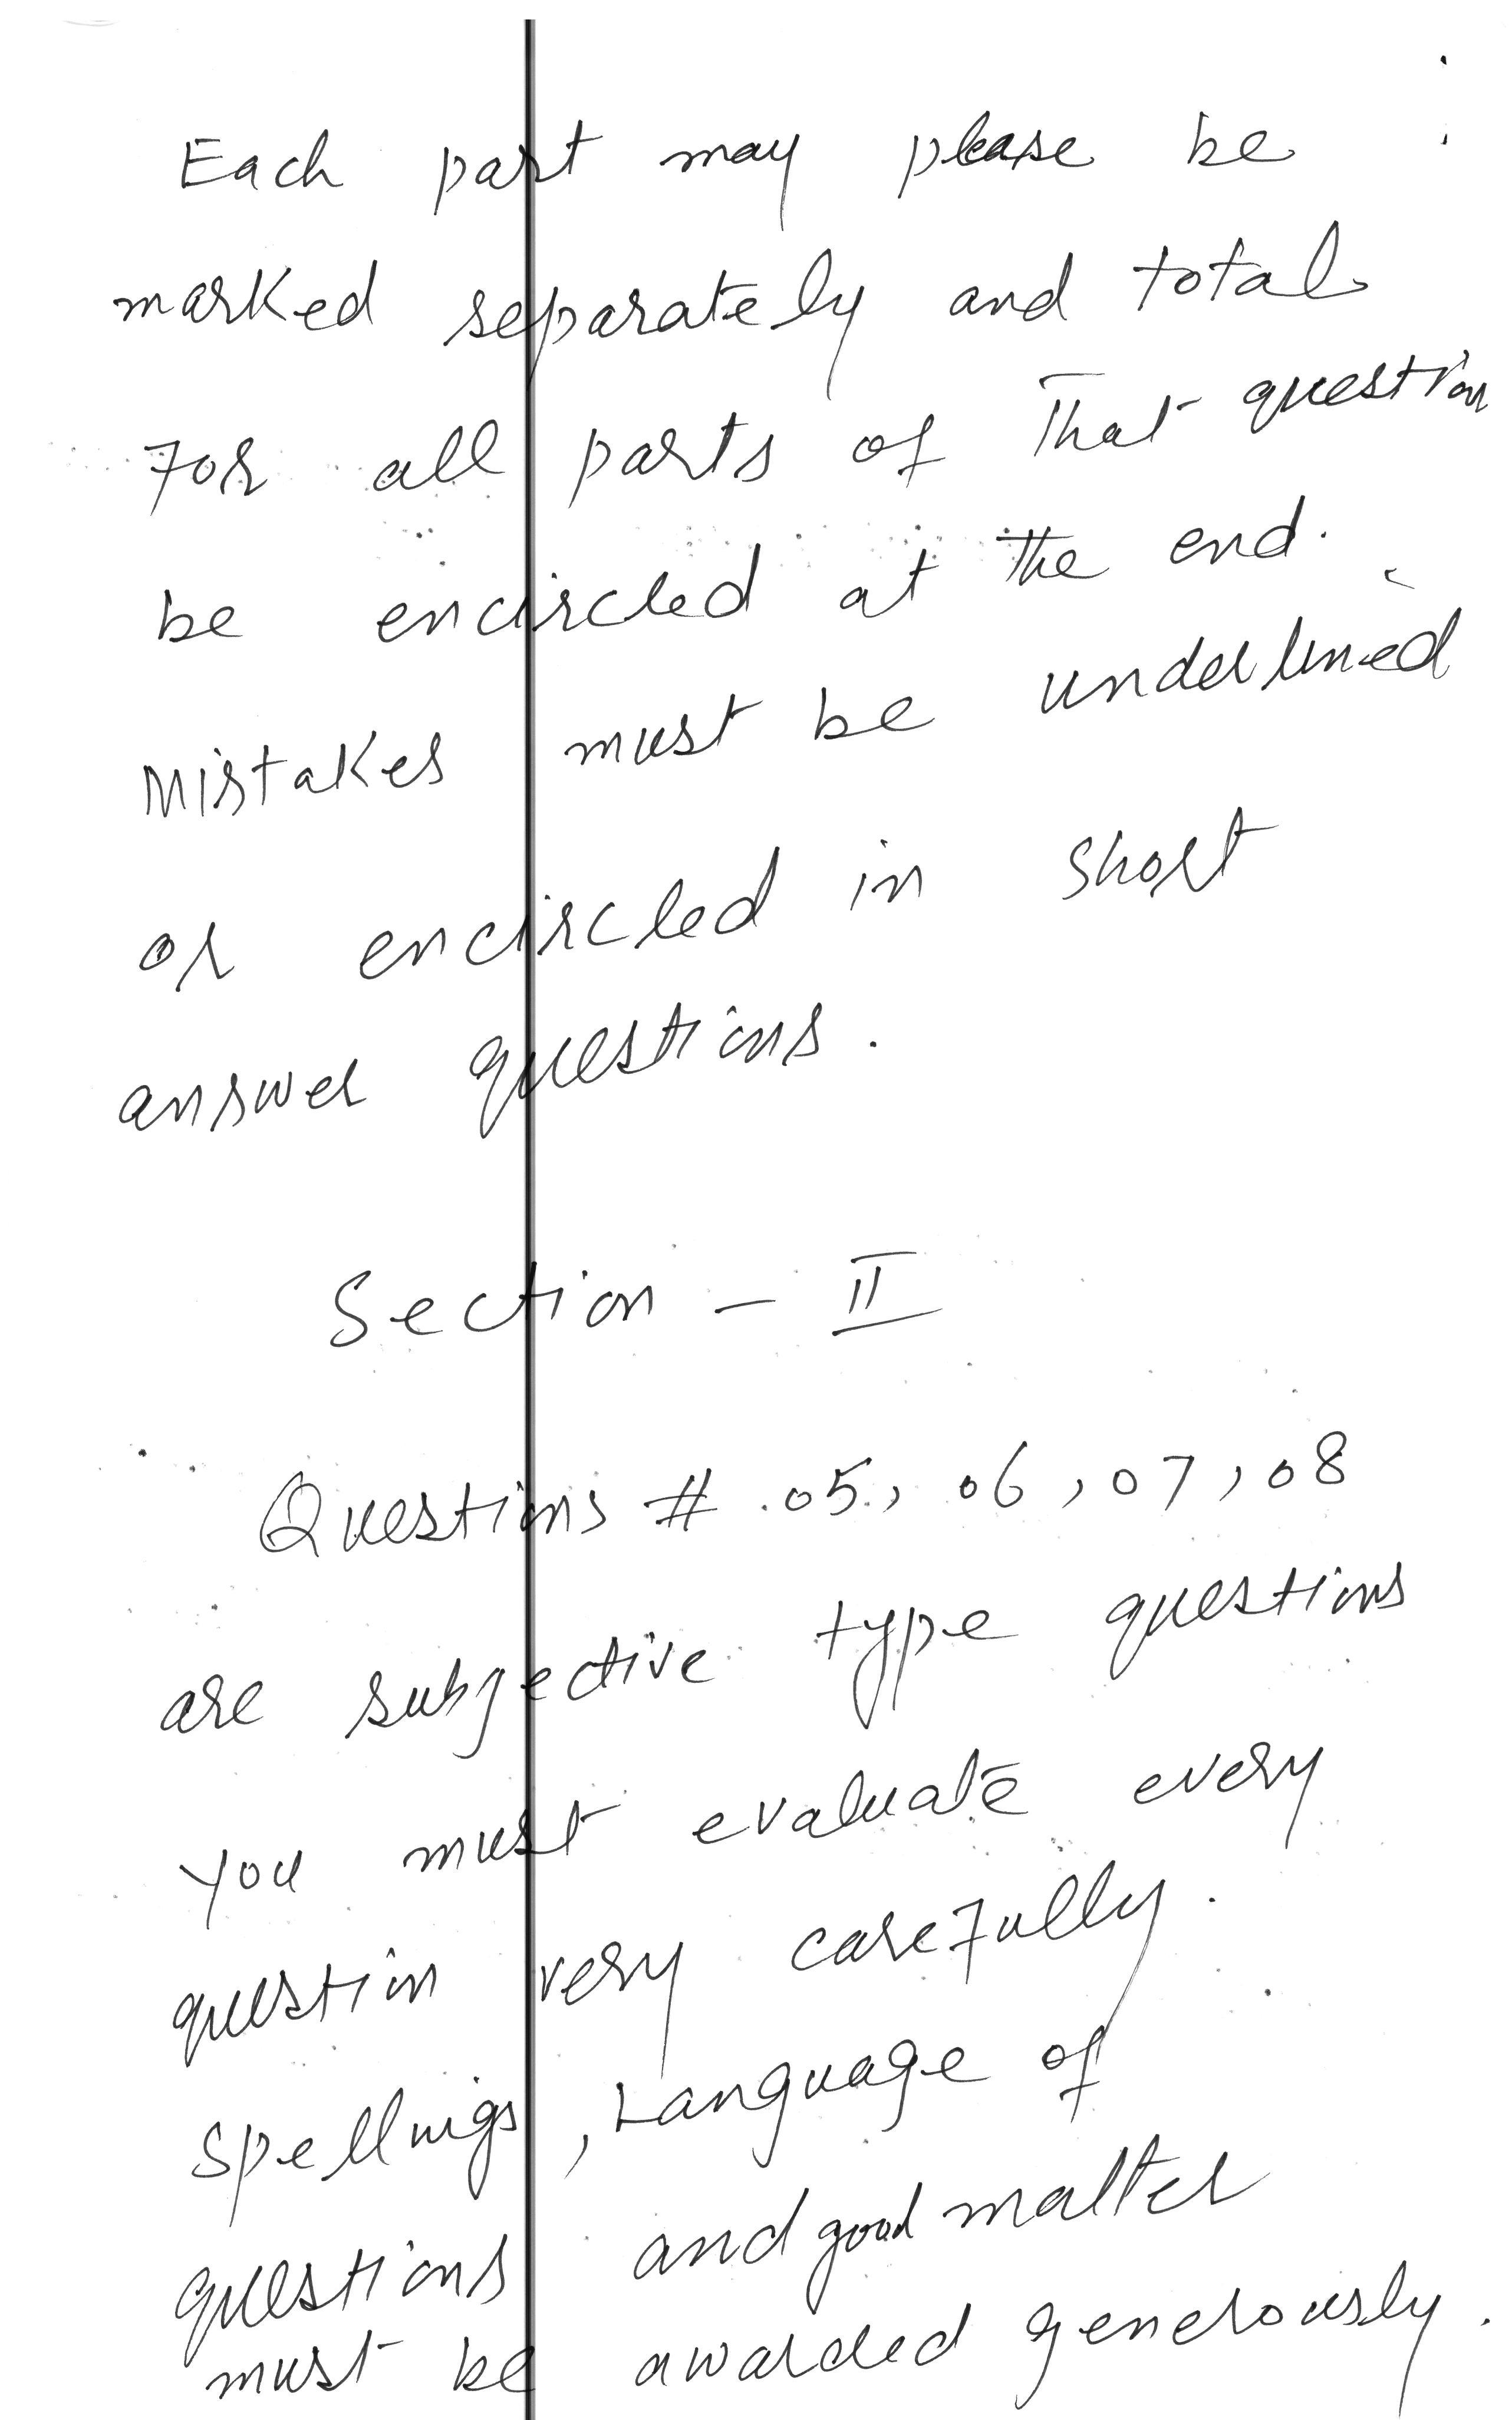 Each part may please be
marked separately and total
For all parts of That question
be encircled at the end.
Mistakes must be underlined
or encircled in short
answer questions.
Section - II
Questions # 05, 06, 07, 08
are subjective type questions
you must evaluate every
question very carefully.
Spellings, Language of
questions and good matter
must be awarded generously.